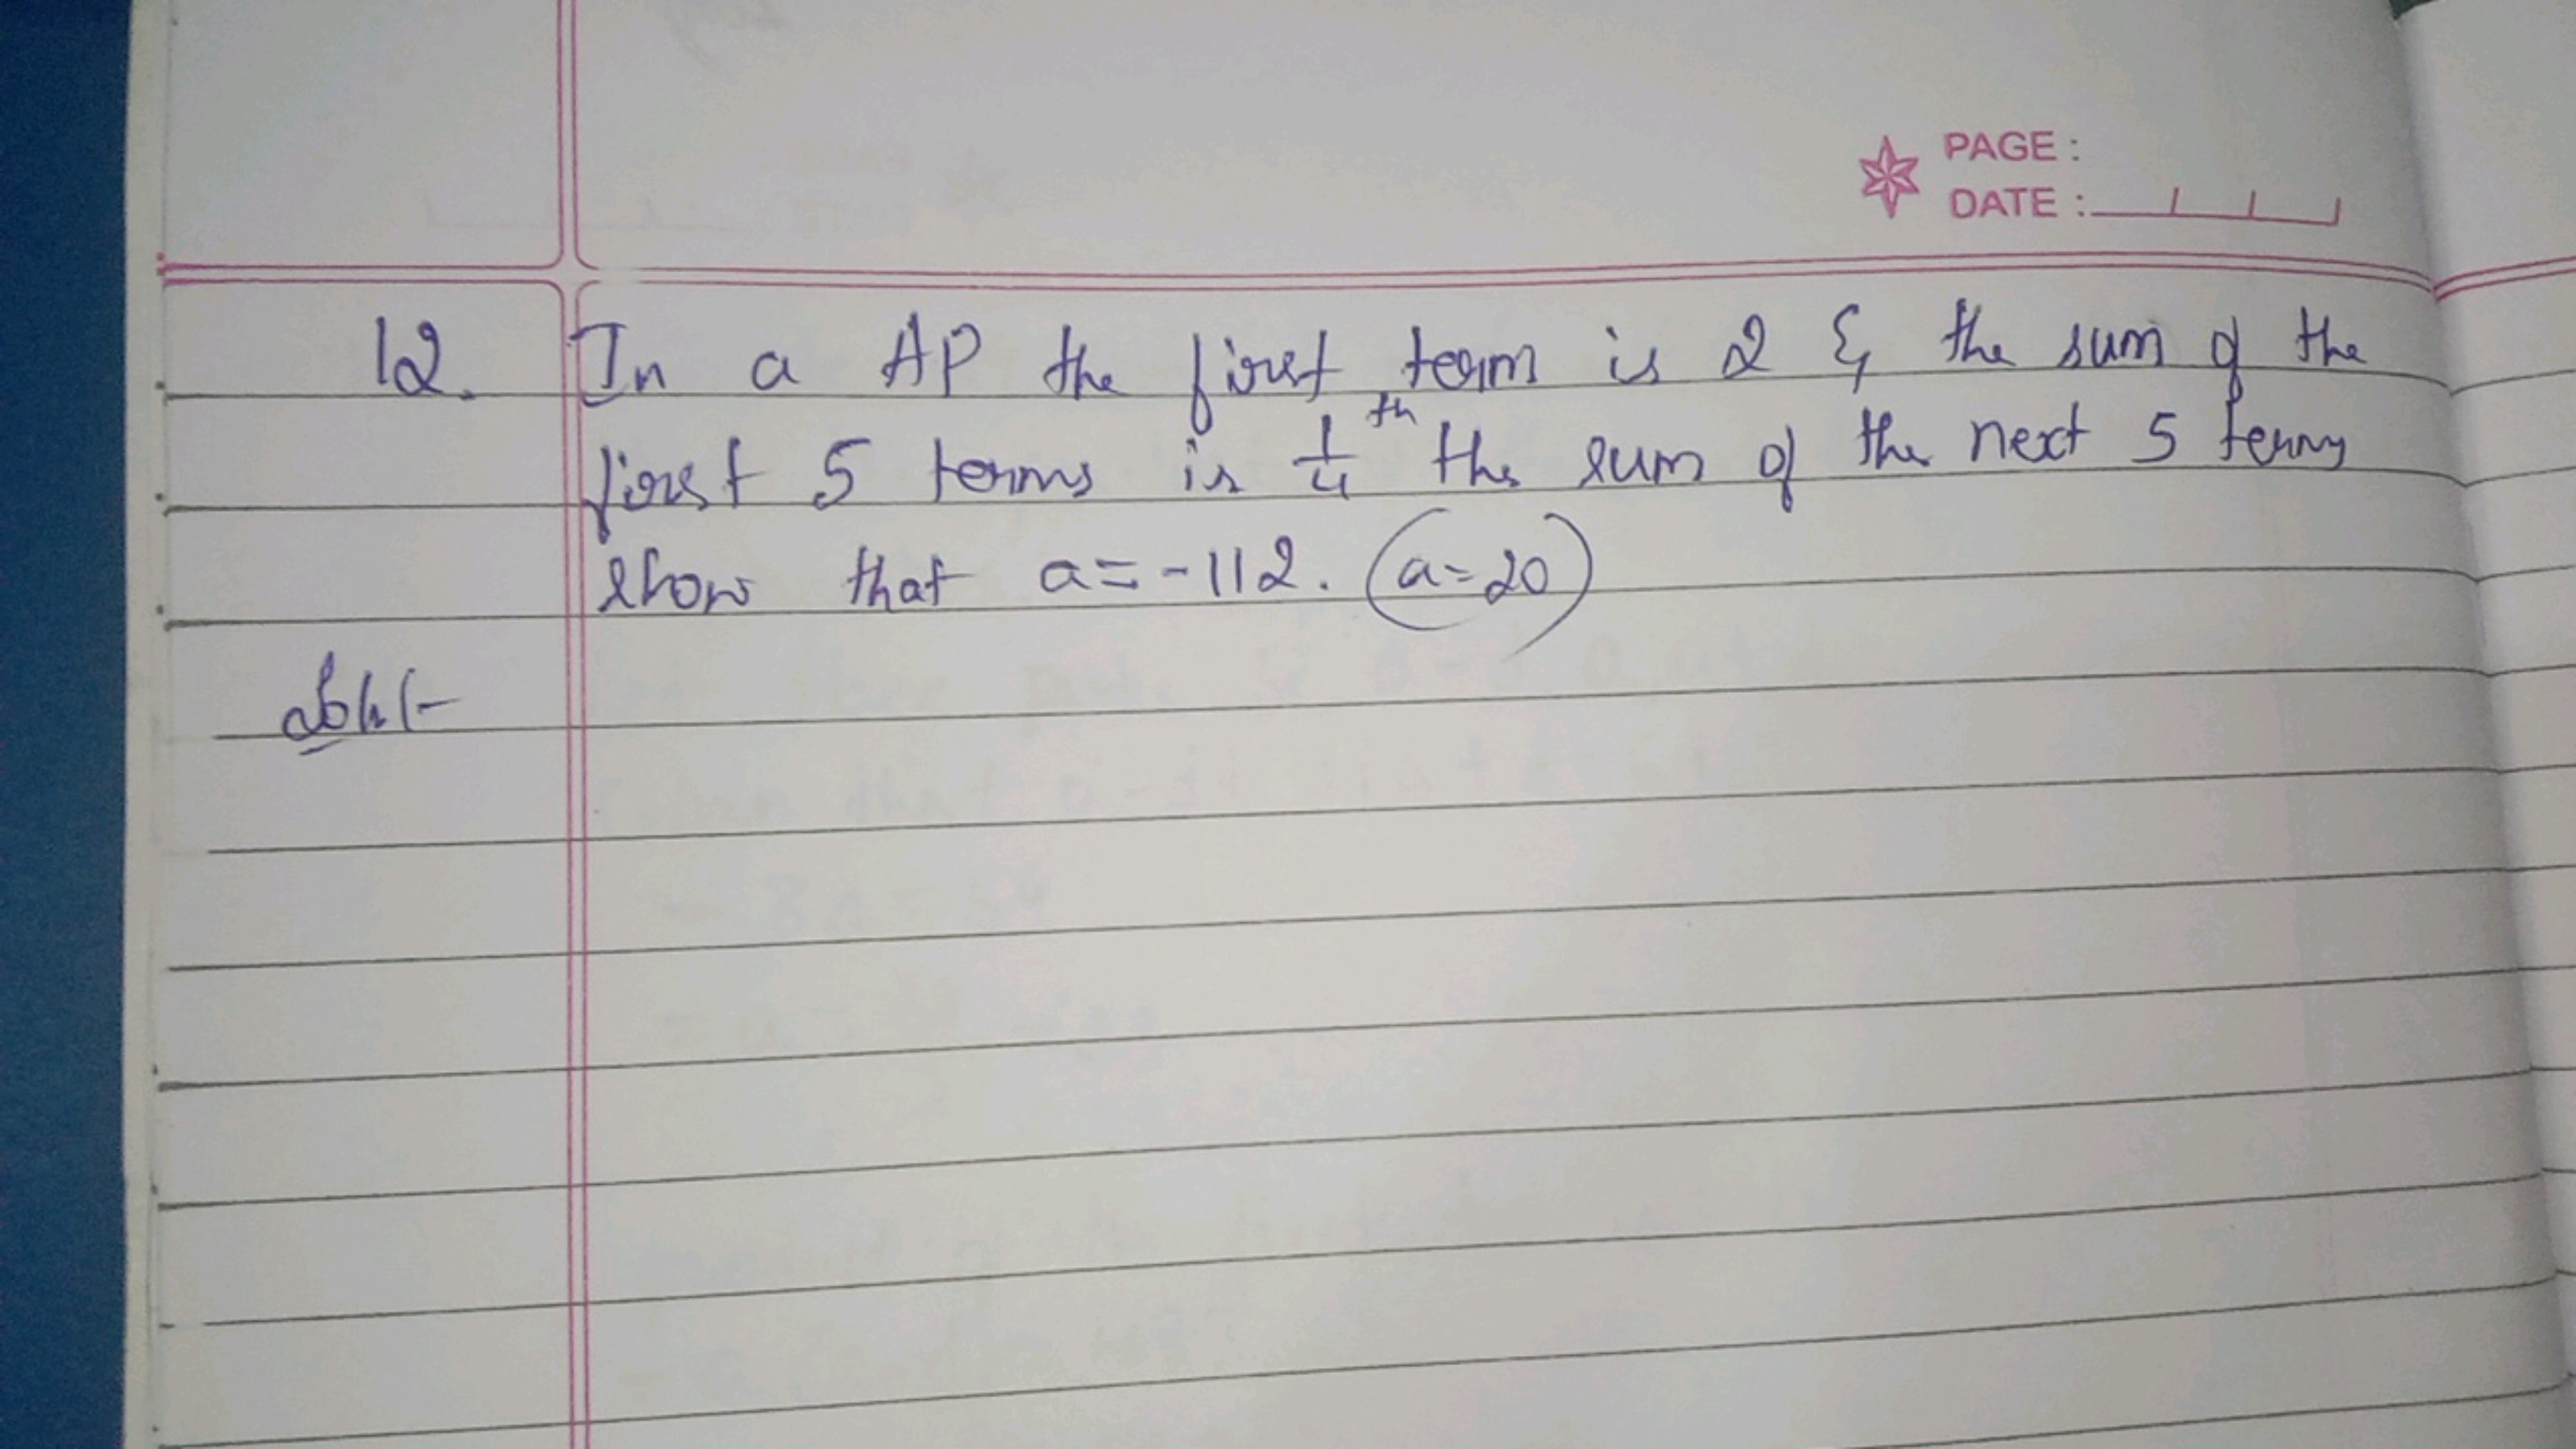 PAGE :
DATE :
12. In a AP the first term is 2 & the sum of the
first 5 terms is 1/4 th the sum of the next 5 terms
show that a = -112. (a = 20)
Soln :-